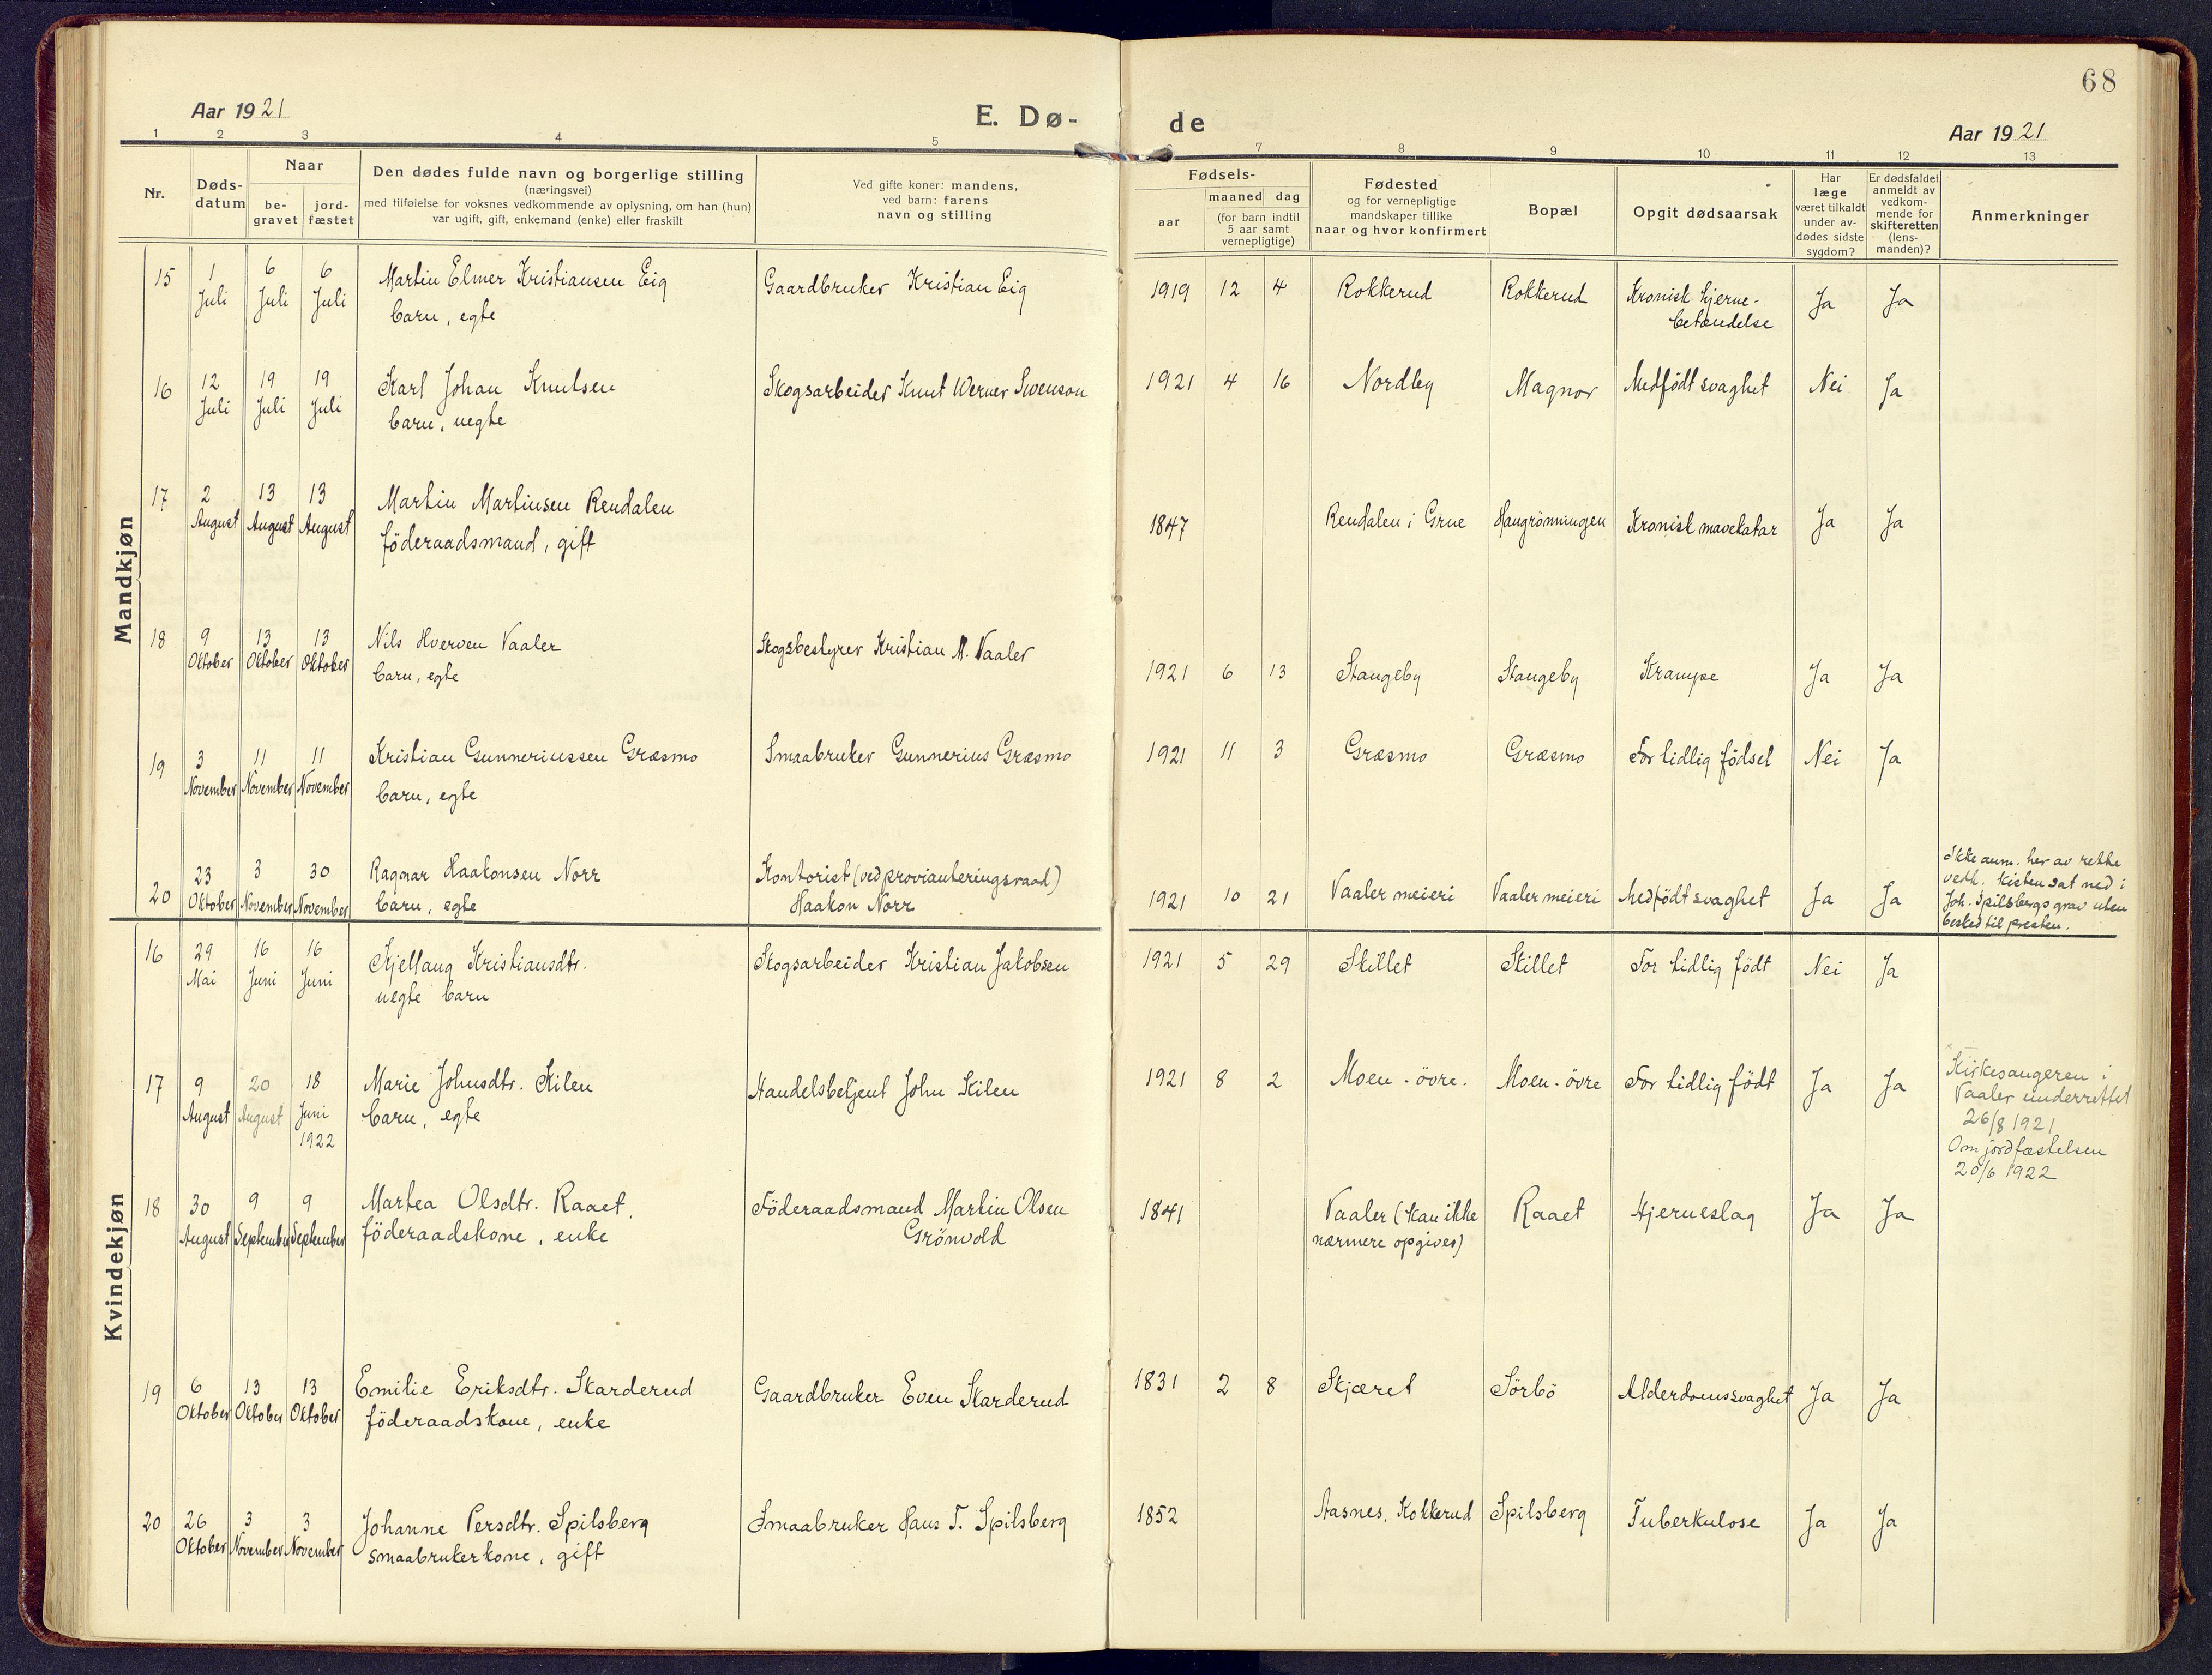 68
Aar 1921
E. Dø-
de
Aar 1921
1 2 3 4 5 6 7 8 9 10 11 12 13
Nr.
Døds-
datum
Naar
be-
gravet
jord-
fæstet
Den dødes fulde navn og borgerlige stilling
(næringsvei)
med tilføielse for voksnes vedkommende av oplysning, om han (hun)
var ugift, gift, enkemand (enke) eller fraskilt
Ved gifte koner: mandens,
ved barn: farens
navn og stilling
Fødsels-
aar
maaned dag
(for barn indtil
5 aar samt
vernepligtige)
Fødested
og for vernepligtige
mandskaper tillike
naar og hvor konfirmert
Bopæl
Opgit dødsaarsak
Har
læge
været tilkaldt
under av-
dødes sidste
sygdom?
Er dødsfaldet
anmeldt av
vedkom-
mende for
skifteretten
(lens-
manden)?
Anmerkninger
Mandkjøn
15 1 6 6 Martin Elmer Kristiansen Eig Gaardbruker Kristian Eig 1919 12 4 Rokkerud Rokkerud Kronisk hjerne- Ja Ja
Juli Juli Juli barn, egte betændelse
16 12 19 19 Karl Johan Knutsen Skogsarbeider Knut Werner Svenson 1921 4 16 Nordby Magnor Medfødt svaghet Nei Ja
Juli Juli Juli barn, uegte
17 2 13 13 Martin Martinsen Rendalen 1847 Rendalen i Grue Haugrönningen Kronisk mavekatar Ja Ja
August August August föderaadsmand, gift
18 9 13 13 Nils Hverven Vaaler Skogsbestyrer Kristian M. Vaaler 1921 6 13 Stangeby Stangeby Krampe Ja Ja
Oktober Oktober Oktober barn, egte
19 3 11 11 Kristian Gunneriussen Græsmo Smaabruker Gunnerius Græsmo 1921 11 3 Græsmo Græsmo For tidlig fødsel Nei Ja
November November November barn, egte
20 23 3 30 Ragnar Haakonsen Norr Kontorist (ved provianteringsraad) 1921 10 21 Vaaler meieri Vaaler meieri Medfødt svaghet Ja Ja
Oktober November November barn, egte Haakon Norr
Ikke anm. her av rette
vedk. Kisten sat ned i
Joh. Spilsbergs grav uten
besked til presten.
Kvindekjøn
16 29 16 16 Kjellaug Kristiansdtr. Skogsarbeider Kristian Jakobsen 1921 5 29 Skillet Skillet For tidlig født Nei Ja
Mai Juni Juni uegte barn
17 9 20 18 Marie Johnsdtr. Kilen Handelsbetjent John Kilen 1921 8 2 Moen-övre. Moen-övre For tidlig født Ja Ja
August August Juni barn, egte
1922
Kirkesangeren i
Vaaler underrettet
26/8 1921
Om jordfæstelsen
20/6 1922
18 30 9 9 Martea Olsdtr. Raaet, Föderaadsmand Martin Olsen 1841 Vaaler (kan ikke Raaet Hjerneslag Ja Ja
August September September föderaadskone, enke Grönvold nærmere opgives)
19 6 13 13 Emilie Eriksdtr. Skarderud Gaardbruker Even Skarderud 1831 2 8 Skjæret Sörbö Alderdomssvaghet Ja Ja
Oktober Oktober Oktober föderaadskone, enke
20 26 3 3 Johanne Persdtr. Spilsberg Smaabruker Hans T. Spilsberg 1852 Aasnes, Kokkerud Spilsberg Tuberkulose Ja Ja
Oktober November November smaabrukerkone, gift